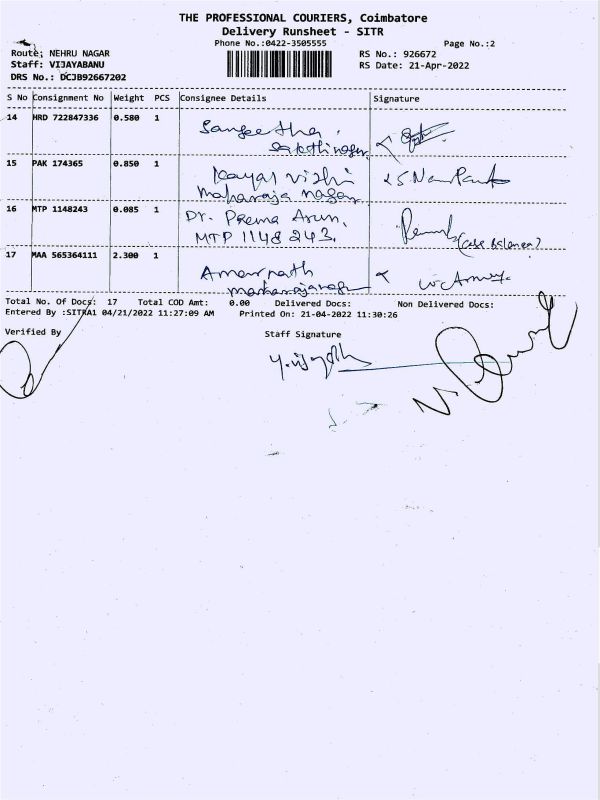 THE PROFESSIONAL COURIERS, Coimbatore
Delivery Runsheet - SITR
Phone No.:0422-3505555 Page No.:2
Route: NEHRU NAGAR RS No.: 926672
Staff: VIJAYABANU RS Date: 21-Apr-2022
DRS No.: DCJB92667202
S No Consignment No Weight PCS Consignee Details Signature
14 HRD 722847336 0.580 1 Sangeetha.
sakthi nagar
15 PAK 174365 0.850 1 Kayal vizhi
maharaja nagar
16 MTP 1148243 0.085 1 Dr. Prema Arun,
MTP 1148 243.
17 MAA 565364111 2.300 1 Amarnath
maharajanagar
Total No. Of Docs: 17 Total COD Amt: 0.00 Delivered Docs: Non Delivered Docs:
Entered By :SITRA1 04/21/2022 11:27:09 AM Printed On: 21-04-2022 11:30:26
Verified By Staff Signature